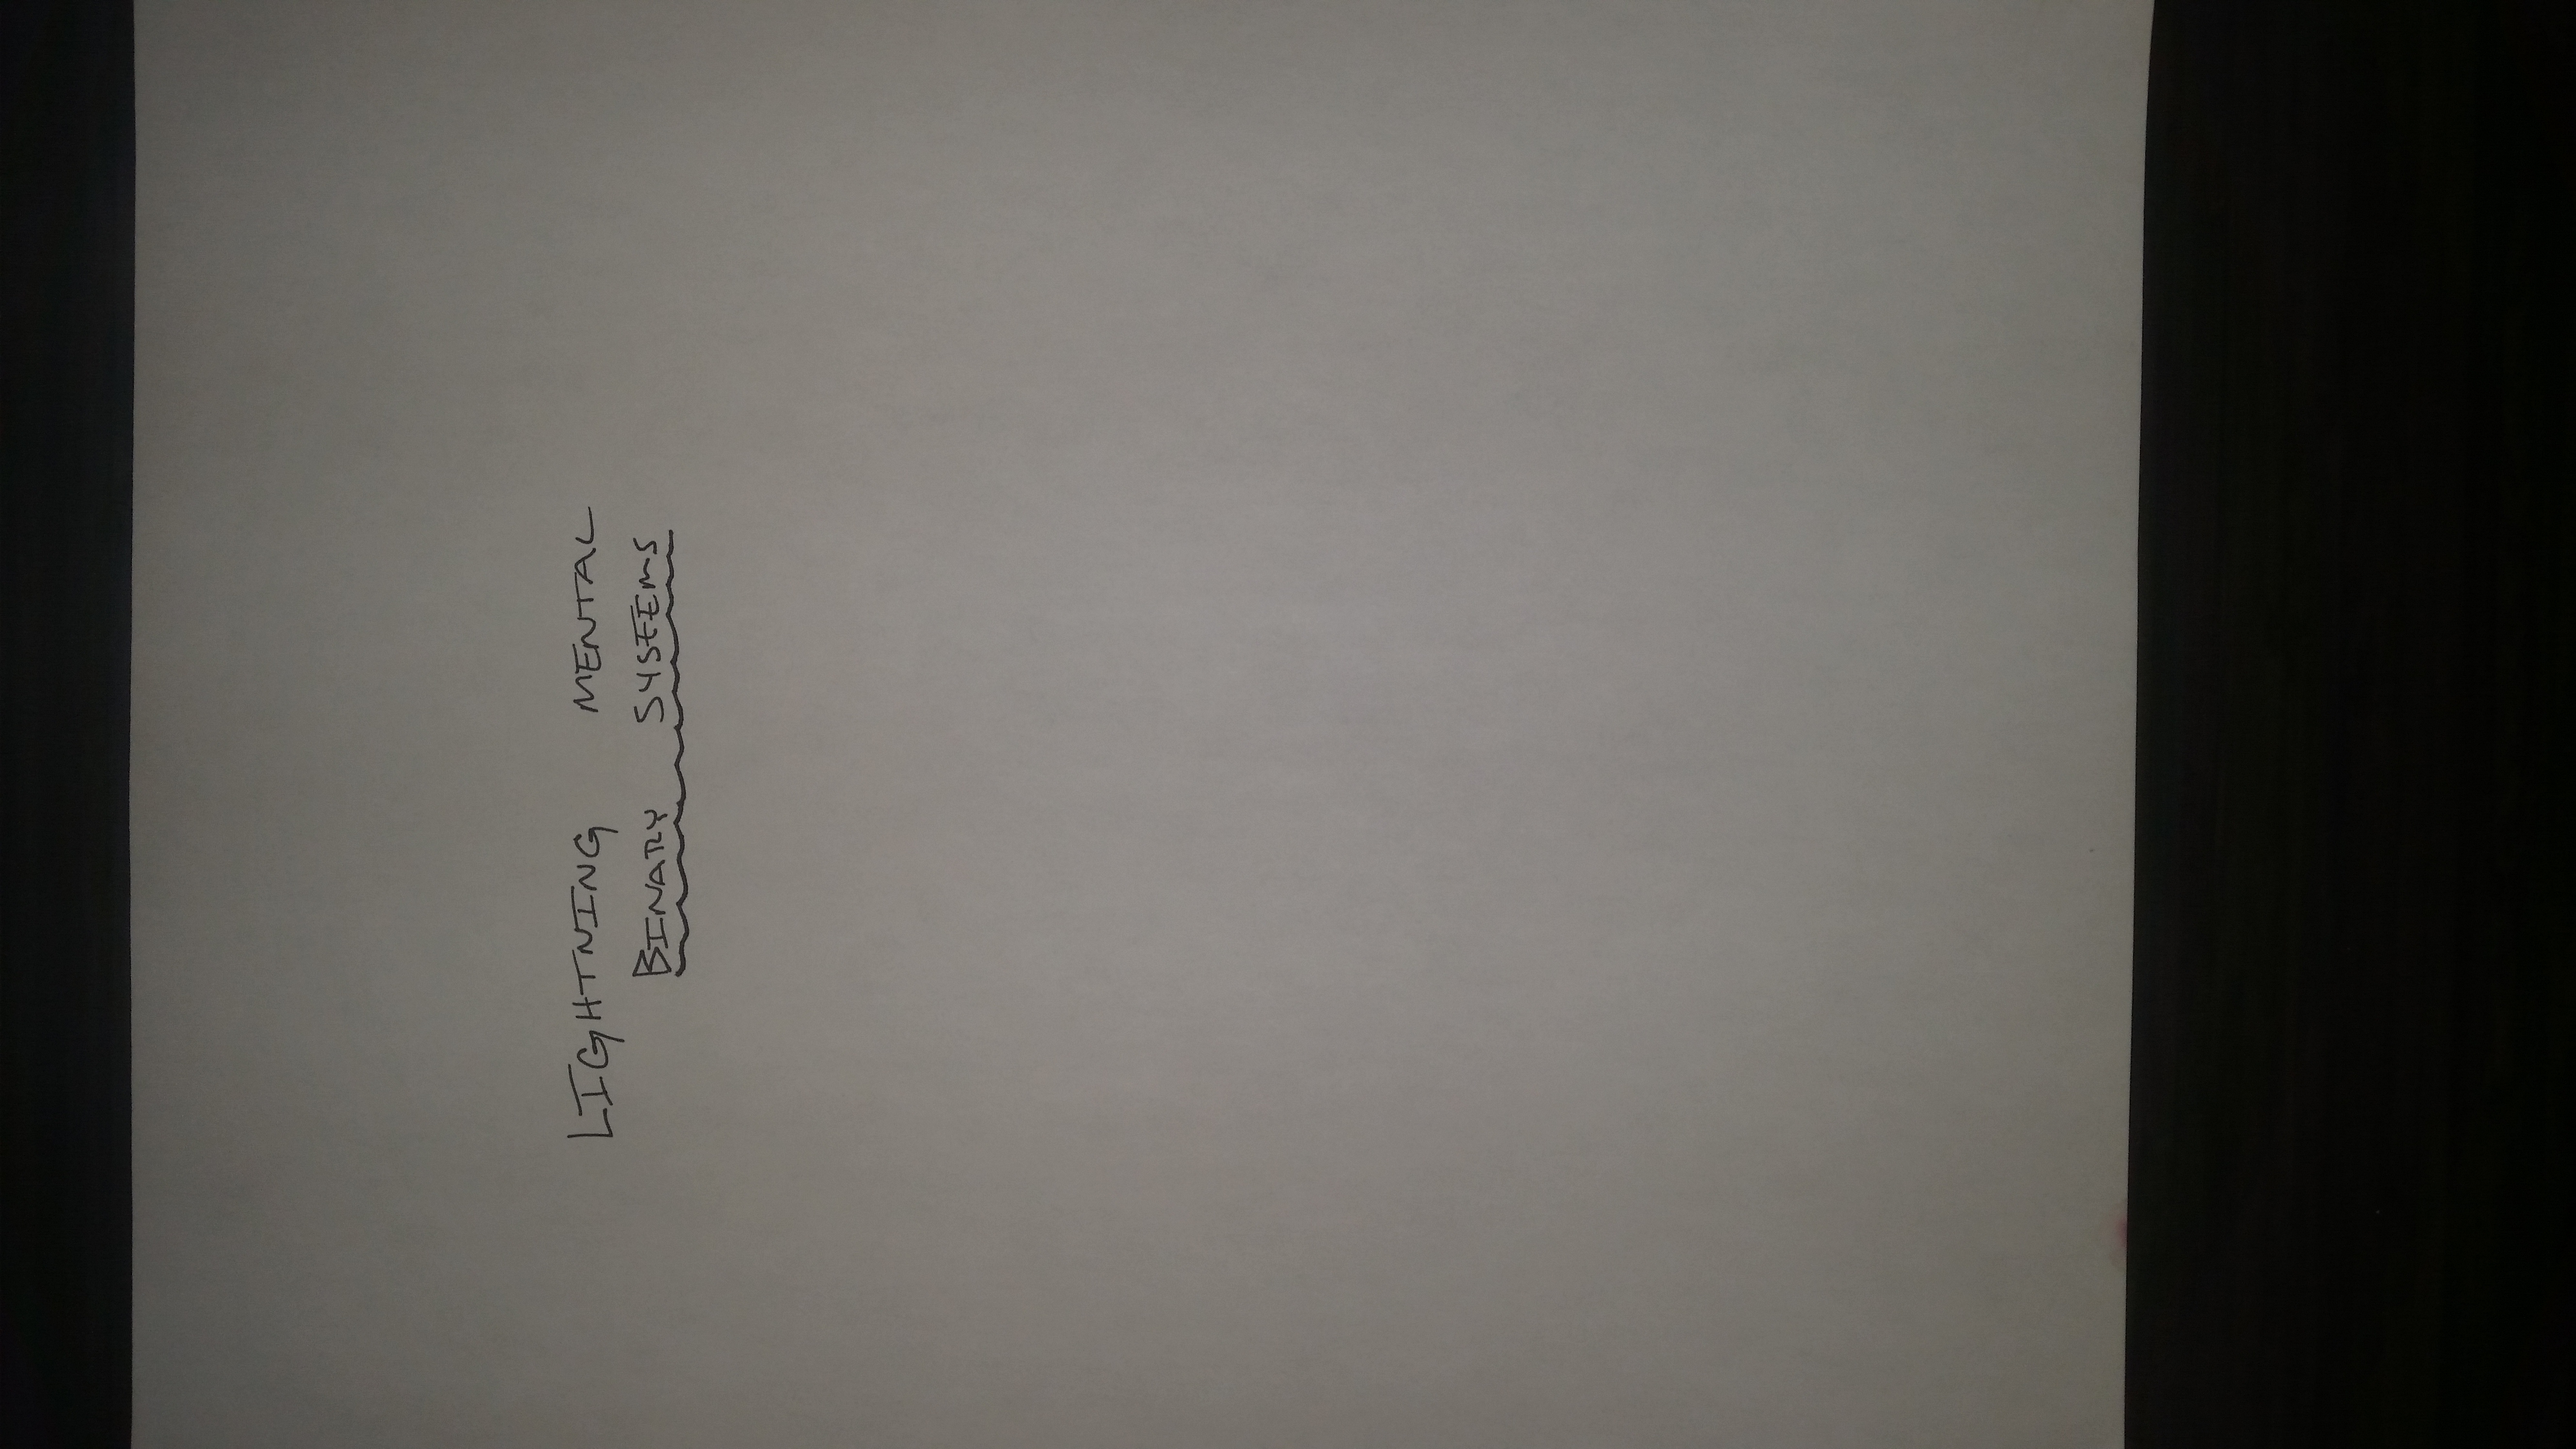 LIGHTNING MENTAL
BINARY SYSTEEMS